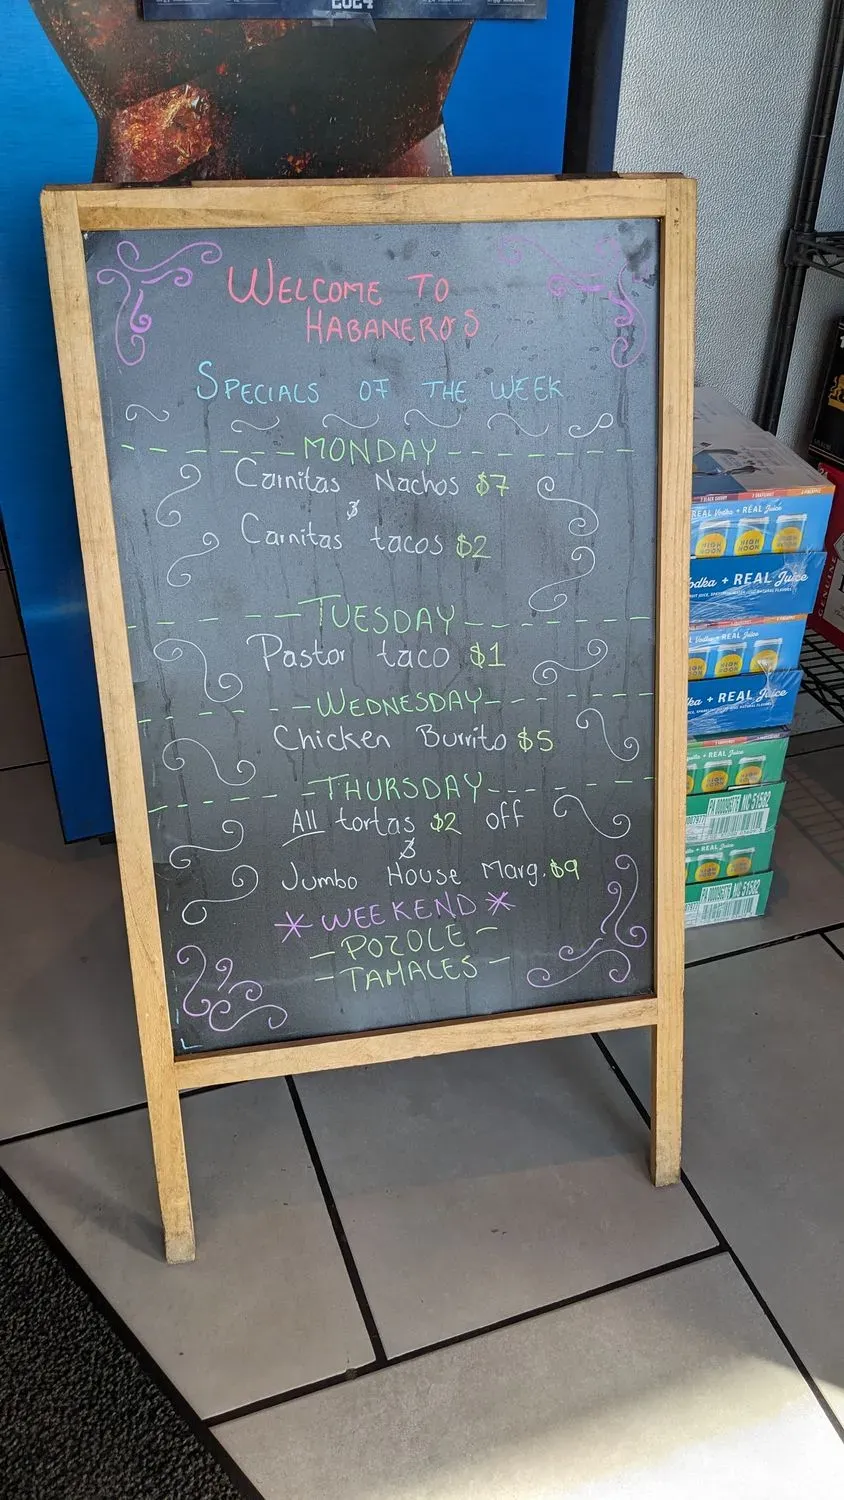 2024
WELCOME TO
HABANERO'S
SPECIALS OF THE WEEK
MONDAY
Carnitas Nachos $7
&
Carnitas tacos $2
TUESDAY
Pastor taco $1
WEDNESDAY
Chicken Burrito $5
THURSDAY
All tortas $2 off
&
Jumbo House Marg. $9
* WEEKEND *
- POZOLE -
- TAMALES -
REAL Vodka + REAL Juice
HIGH NOON
Vodka + REAL Juice
Vodka + REAL Juice
HIGH NOON
+ REAL Juice
PA 000093678 NC 51582
+ REAL Juice
PA 000093678 NC 51582
GENUINE